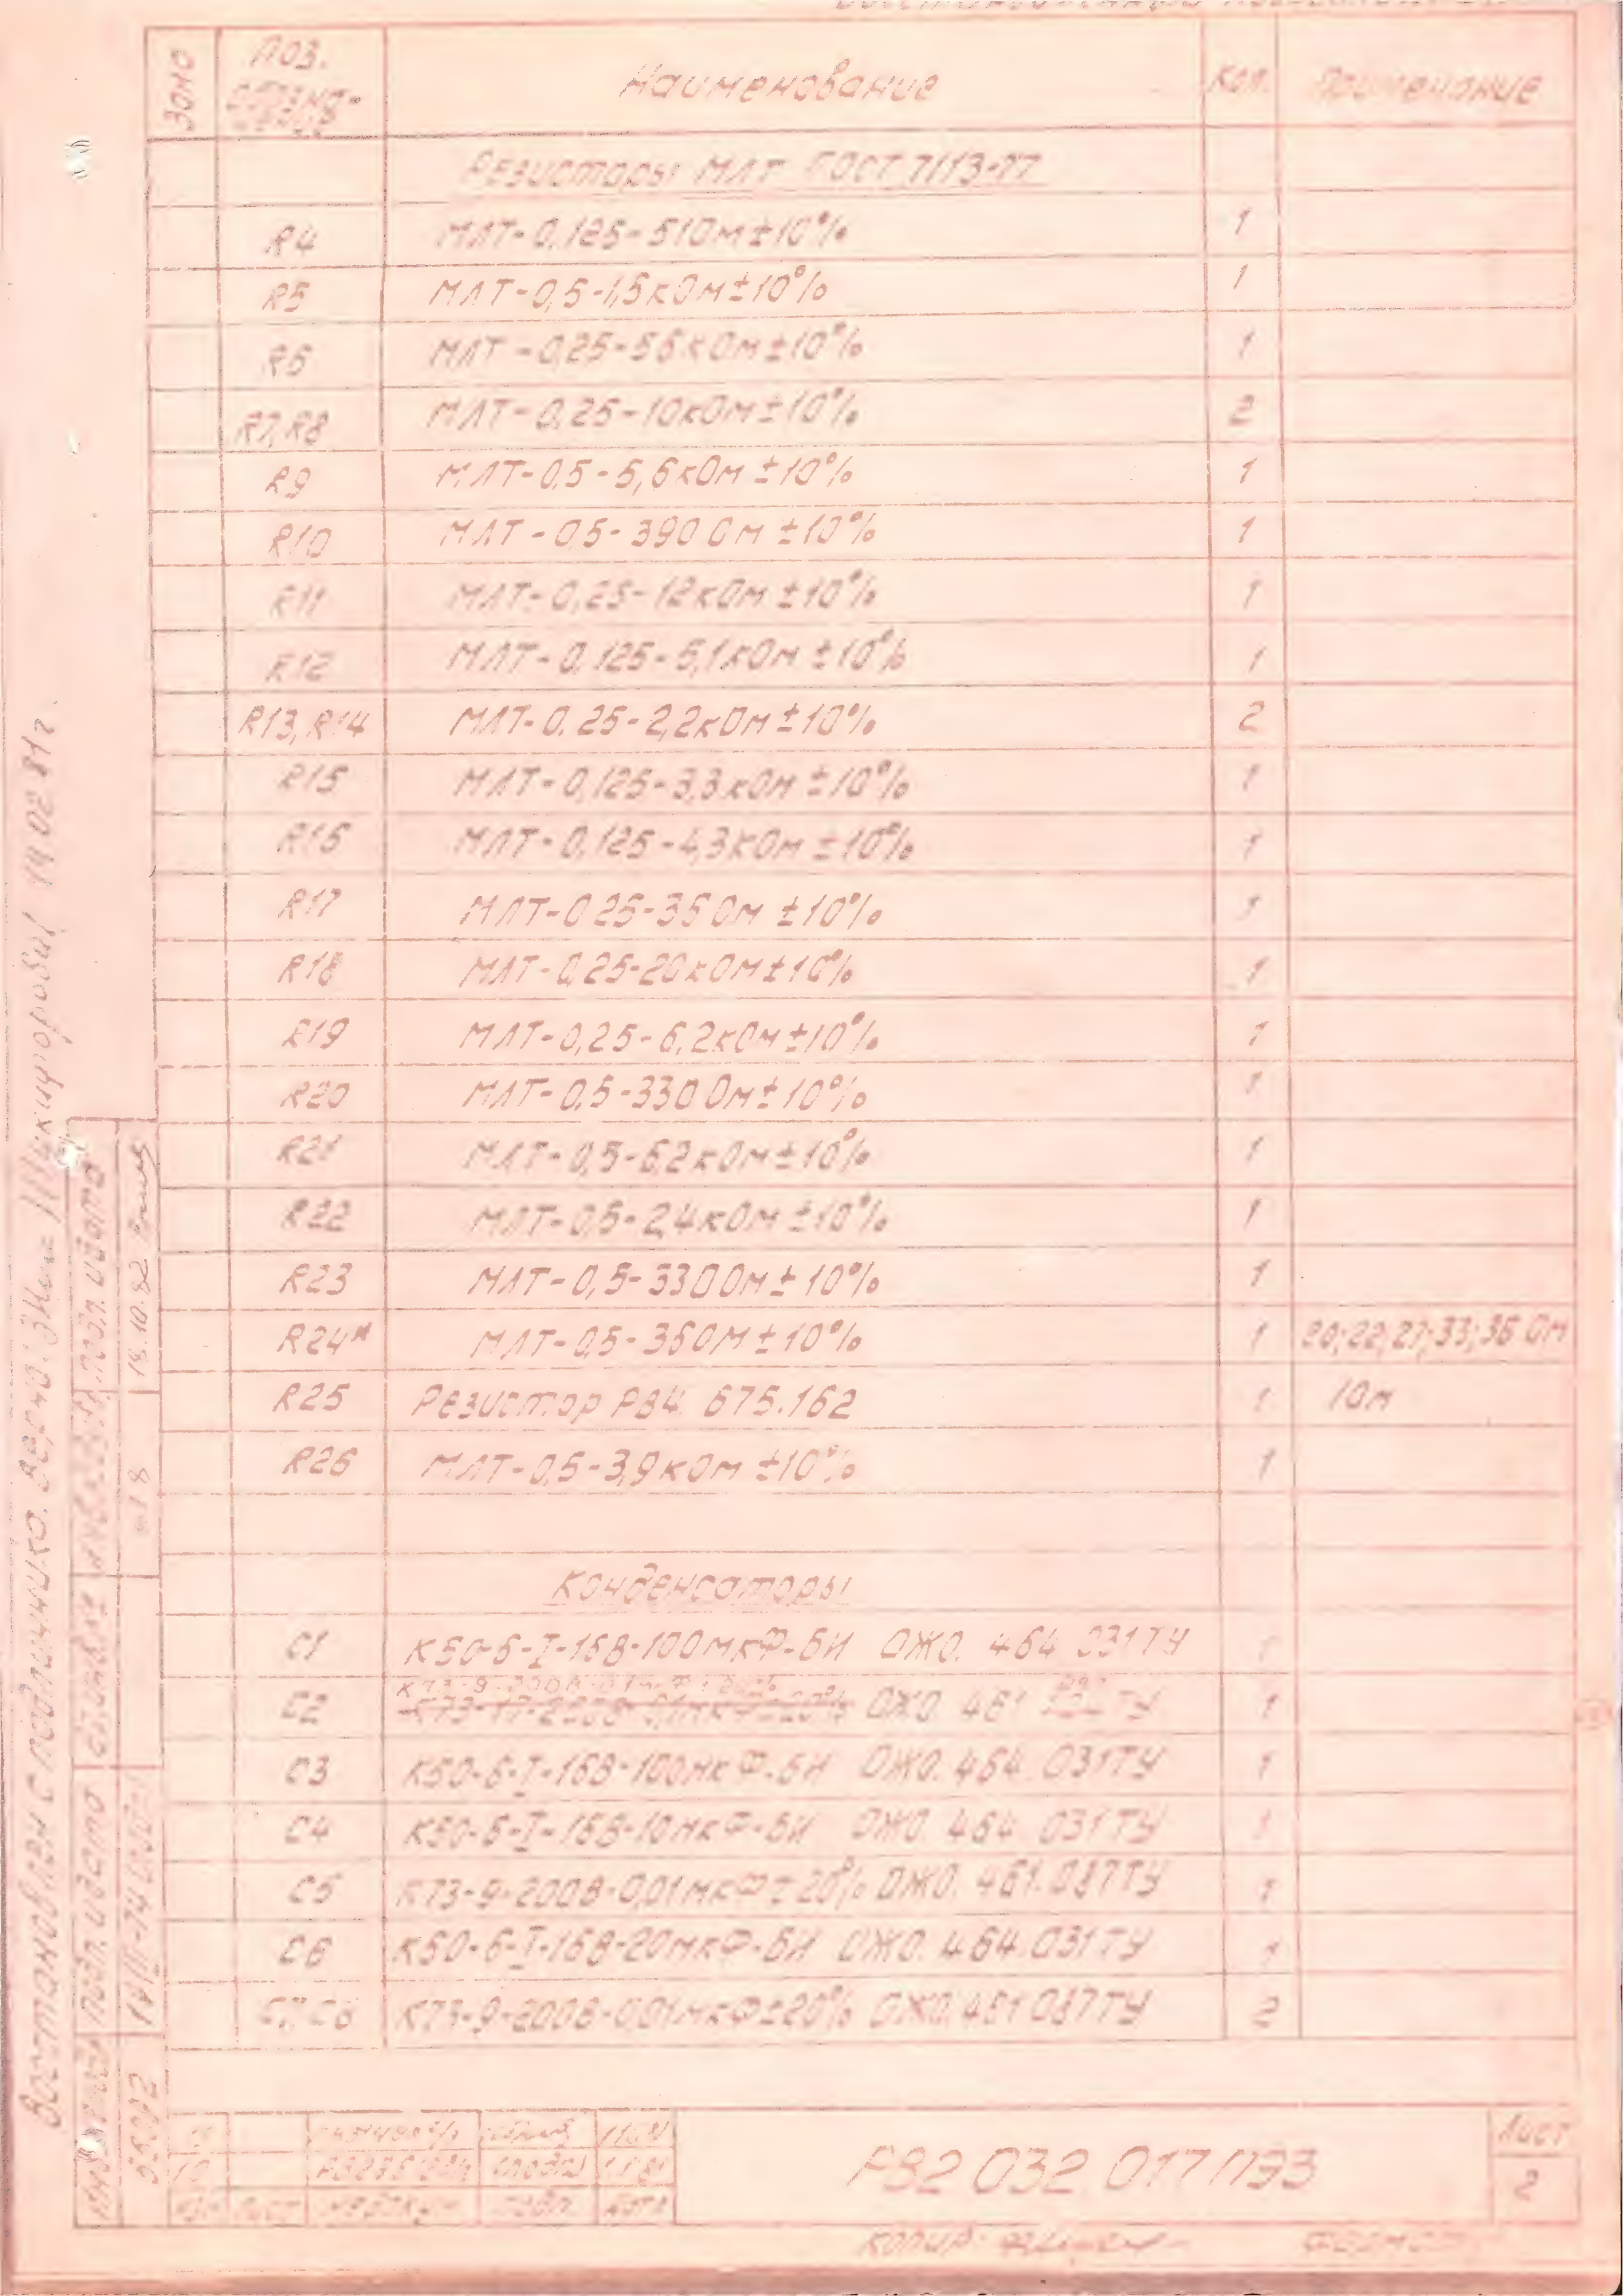 Зона Поз. обозначение Наименование Кол. Примечание
Резисторы МЛТ ГОСТ 7113-77
R4 МЛТ-0,125-51 Ом±10% 1
R5 МЛТ-0,5-1,5кОм±10% 1
R6 МЛТ-0,25-56кОм±10% 1
R7,R8 МЛТ-0,25-10кОм±10% 2
R9 МЛТ-0,5-5,6кОм±10% 1
R10 МЛТ-0,5-390 Ом±10% 1
R11 МЛТ-0,25-12кОм±10% 1
R12 МЛТ-0,125-5,1кОм±10% 1
R13,R14 МЛТ-0,25-2,2кОм±10% 2
R15 МЛТ-0,125-3,3кОм±10% 1
R16 МЛТ-0,125-4,3кОм±10% 1
R17 МЛТ-0,25-36 Ом±10% 1
R18 МЛТ-0,25-20кОм±10% 1
R19 МЛТ-0,25-6,2кОм±10% 1
R20 МЛТ-0,5-330 Ом±10% 1
R21 МЛТ-0,5-6,2кОм±10% 1
R22 МЛТ-0,5-2,4кОм±10% 1
R23 МЛТ-0,5-330 Ом±10% 1
R24* МЛТ-0,5-36 Ом±10% 1 20;22;27;33;36 Ом
R25 Резистор РВ4.675.162 1 1 Ом
R26 МЛТ-0,5-3,9кОм±10% 1
Конденсаторы
C1 К50-6-I-16В-100мкФ-БИ ОЖО.464.031ТУ
К73-9-200В-0,1мкФ±20%
C2 К73-17-200В-0,1мкФ±20% ОЖО.461 ТУ 1
C3 К50-6-I-16В-100мкФ-БИ ОЖО.464.031ТУ 1
C4 К50-6-I-16В-10мкФ-БИ ОЖО.464.031ТУ 1
C5 К73-9-200В-0,01мкФ±20% ОЖО.461.087ТУ 1
C6 К50-6-I-16В-20мкФ-БИ ОЖО.464.031ТУ 1
C7,C8 К73-9-200В-0,01мкФ±20% ОЖО.461.087ТУ 2
РВ2.032.017ПЭ3
Лист
2
Изм Лист № докум. Подп. Дата
Копир.
Формат
Восстановлен с подлинника. Верно: 19.02.81г.
Подп. и дата
18.10.82
Взам. инв. №
Подп. и дата